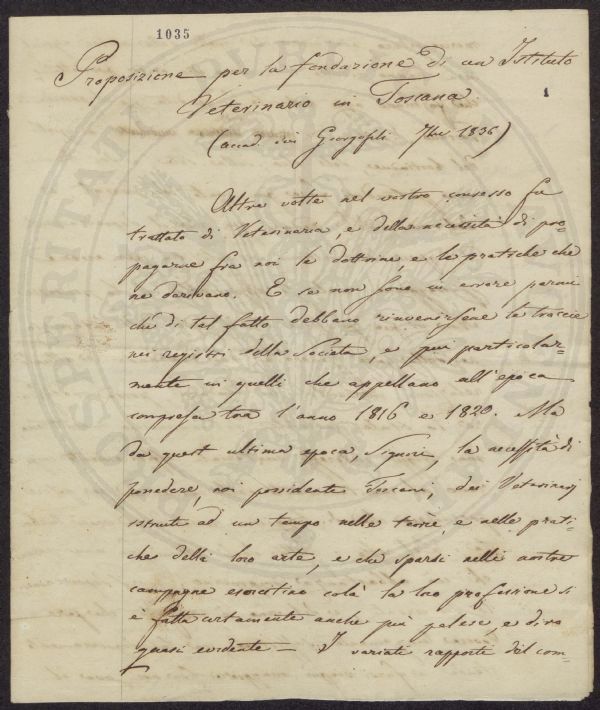 1035
Proposizione per la fondazione di un Istituto
1
Veterinario in Toscana
(accad. dei Georgofili 7bre 1836)
Altre volte nel vostro consesso fu
trattato di Veterinaria, e della necessità di pro=
pagarne fra noi le dottrine, e le pratiche che
ne derivano. E se non sono in errore parmi
che di tal fatto debbano rinvenirsene le traccie
nei registri della Società, e più particolar=
mente in quelli che appellano all'epoca
compresa tra l'anno 1816 e 1820. Ma
da quest ultima epoca, Signori, la necessità di
possedere, noi possidente Toscani, dei Veterinarj
istruite ad un tempo nelle teorie, e nelle prati=
che della loro arte, e che sparsi nelle nostre
campagne esercitino colà la loro professione si
è fatta certamente anche più palese, e dirò
quasi evidente — I variati rapporti del com=